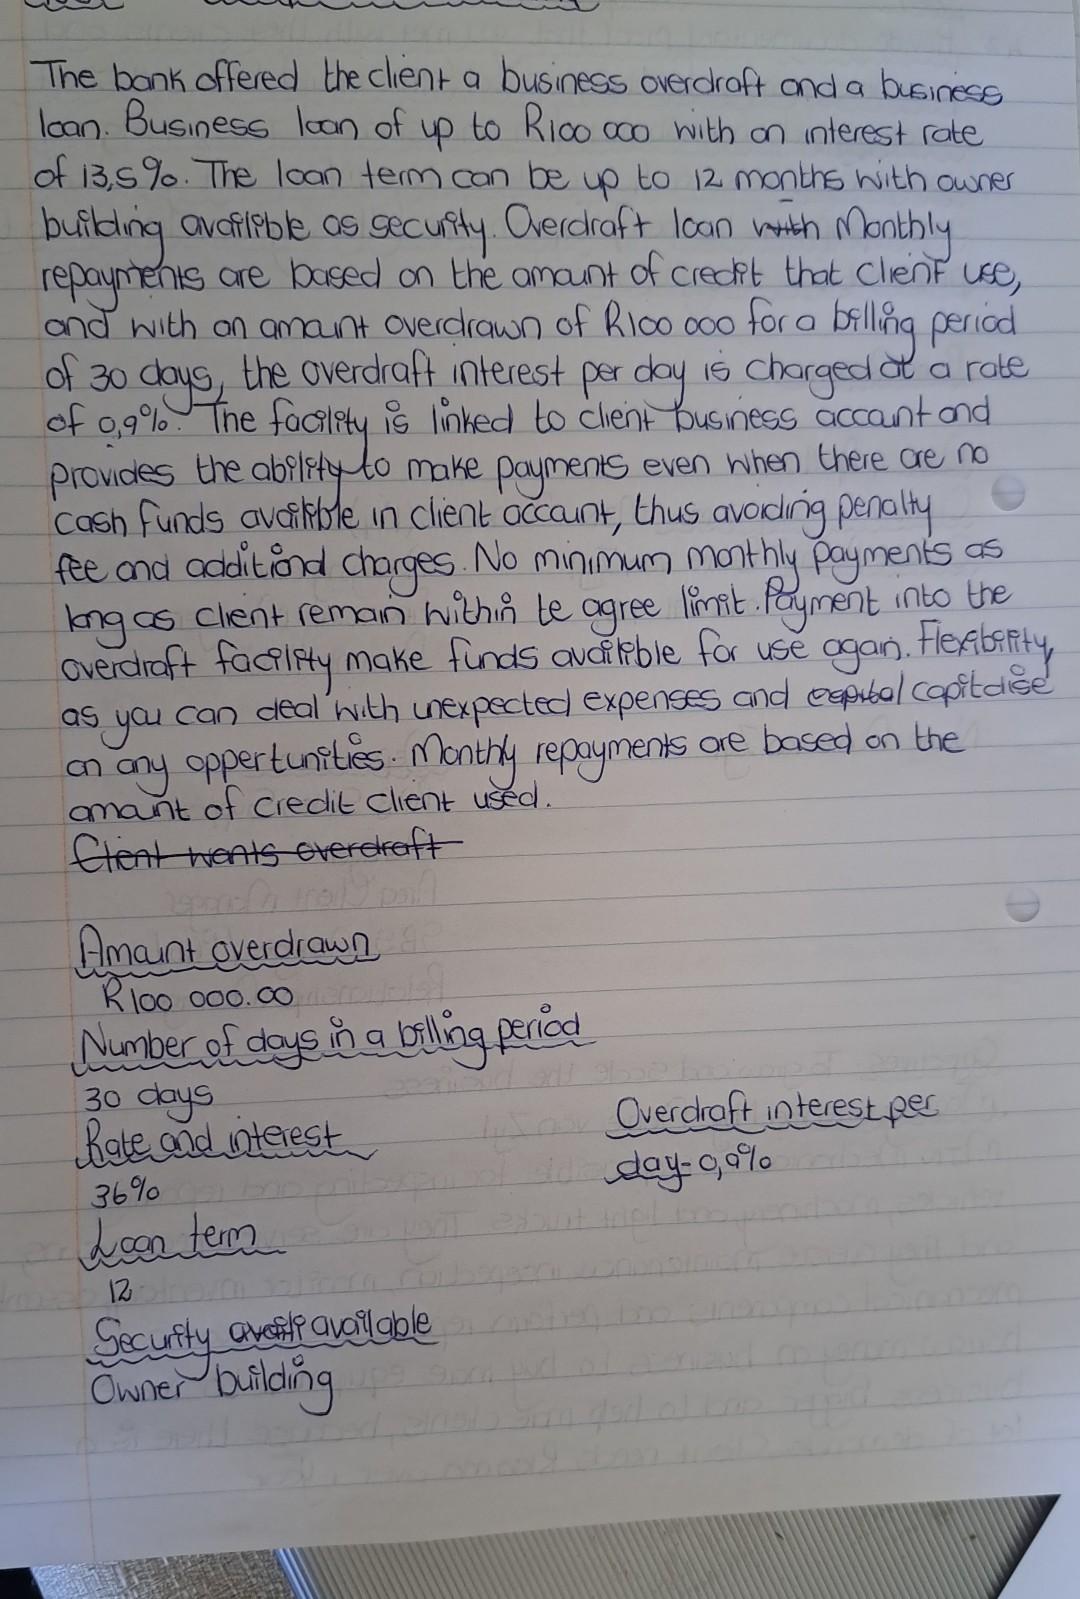 The bank offered the client a business overdraft and a business
loan. Business loan of up to R100 000 with an interest rate
of 13,5%. The loan term can be up to 12 months with owner
building availible as security. Overdraft loan with Monthly
repayments are based on the amount of credit that client use,
and with an amount overdrawn of R100 000 for a billing period
of 30 days, the overdraft interest per day is charged at a rate
of 0,9%. The facility is linked to client business account and
provides the ability to make payments even when there are no
cash funds availible in client account, thus avoiding penalty
fee and additional charges. No minimum monthly payments as
long as client remain within te agree limit. Payment into the
overdraft facility make funds availible for use again. Flexibility,
as you can deal with unexpected expenses and capital capitalise
on any oppertunities. Monthly repayments are based on the
amount of credit client used.
Client wants overdraft
Amount overdrawn
R100 000.00
Number of days in a billing period
30 days
Rate and interest
36%
Overdraft interest per
day- 0,9%
Loan term
12
Security available
Owner building